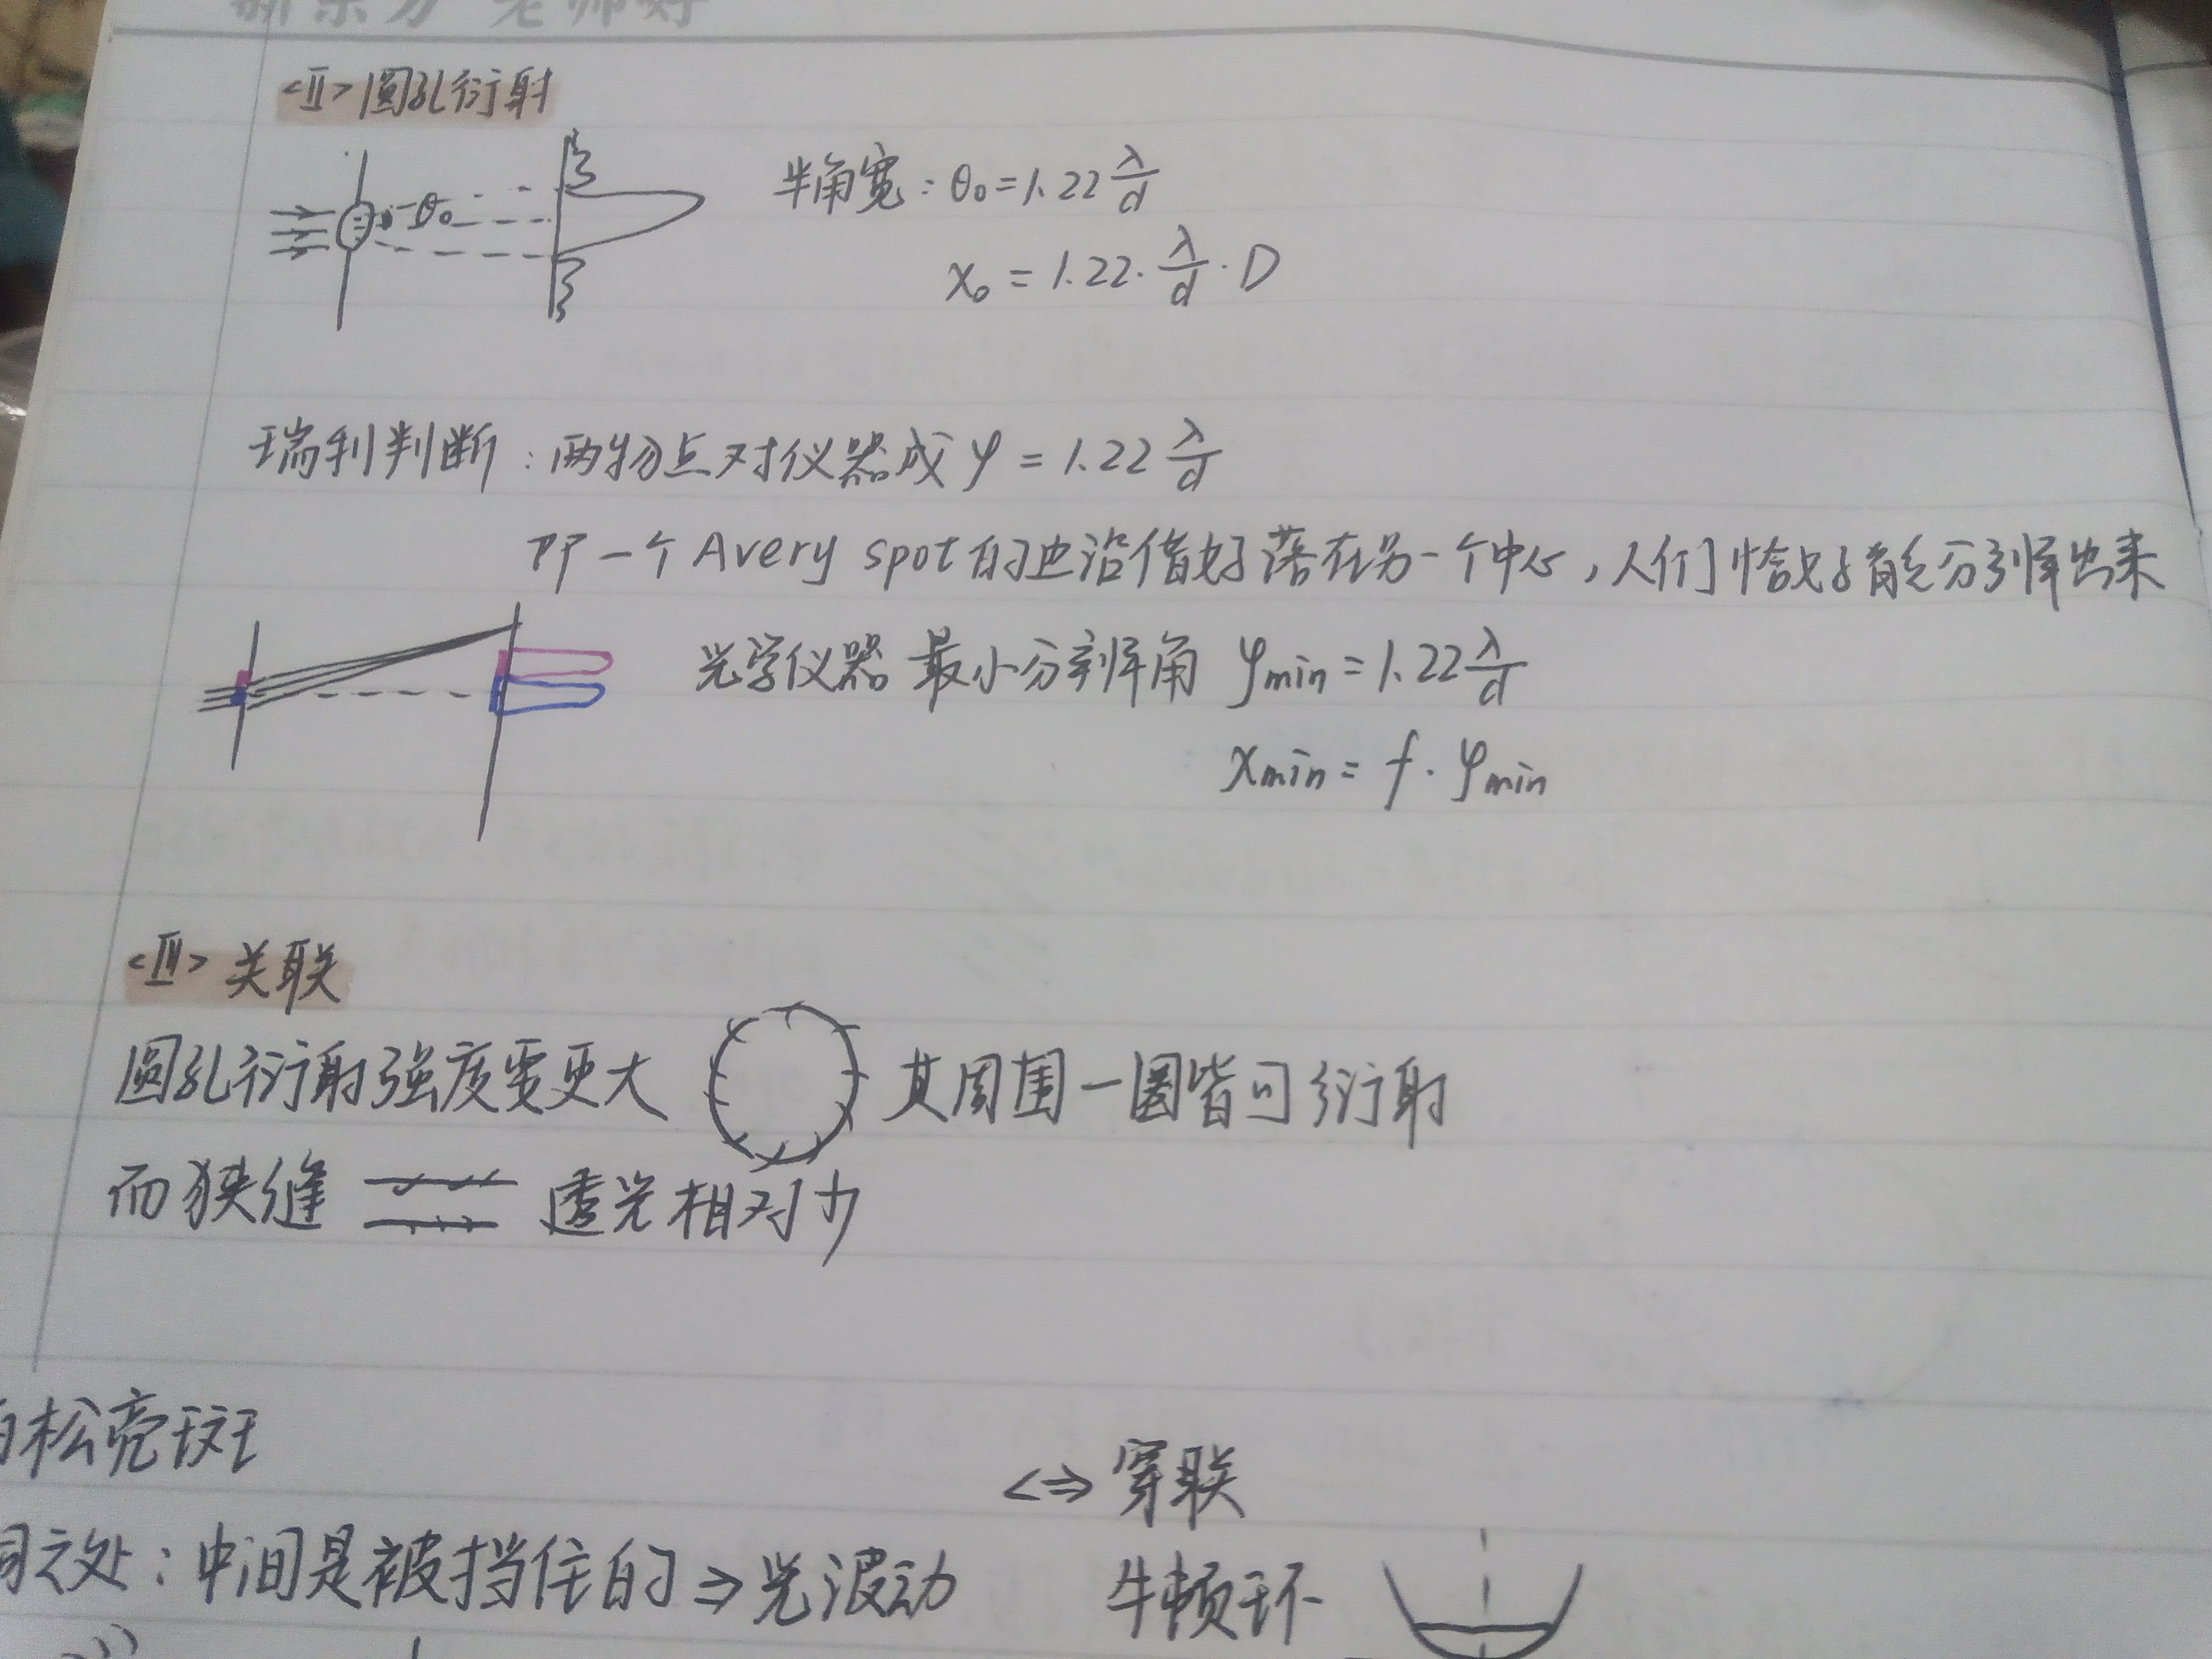 新东方 老师好
<II> 圆孔衍射
θ₀
半角宽：θ₀=1.22 λ/d
x₀ = 1.22 · λ/d · D
瑞利判断：两物点对仪器成 φ = 1.22 λ/d
即一个 Avery spot 的边沿恰好落在另一个中心，人们恰好能分辨出来
光学仪器 最小分辨角 φmin = 1.22 λ/d
xmin = f · φmin
<III> 关联
圆孔衍射强度要更大 其周围一圈皆可衍射
而狭缝 透光相对少
泊松亮斑
<=> 穿联
同之处：中间是被挡住的 ⇒ 光波动
牛顿环